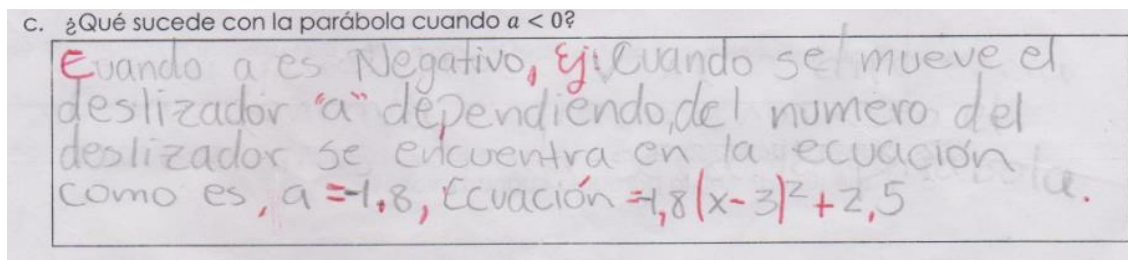 c. ¿Qué sucede con la parábola cuando a < 0?
Cuando a es Negativo, Ej: Cuando se mueve el
deslizador "a" dependiendo, del numero del
deslizador se encuentra en la ecuación
como es, a =-1.8, Ecuación =-1,8(x-3)²+2,5